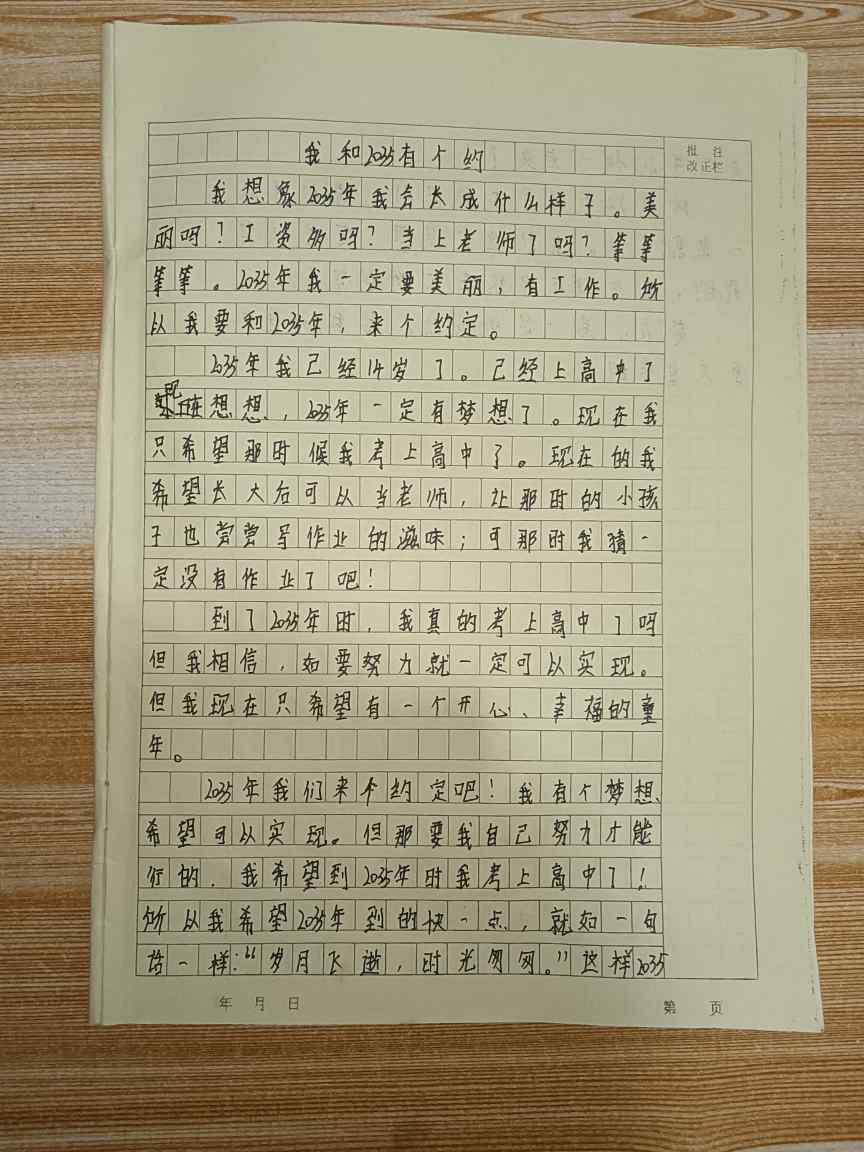 批 注
改正栏
我和2035有个约
我想象2035年我会长成什么样子。美
丽吗？工资多吗？当上老师了吗？等等
等等。2035年我一定要美丽，有工作。所
以我要和2035年，来个约定。
2035年我已经14岁了。已经上高中了
现在想想，2035年一定有梦想了。现在我
只希望那时候我考上高中了。现在的我
希望长大后可以当老师，让那时的小孩
子也尝尝写作业的滋味；可那时我猜一
定没有作业了吧！
到了2035年时，我真的考上高中了吗
但我相信，如要努力就一定可以实现。
但我现在只希望有一个开心、幸福的童
年。
2035年我们来个约定吧！我有个梦想、
希望可以实现。但那要我自己努力才能
行的．我希望到2035年时我考上高中了！
所以我希望2035年到的快一点，就如一句
话一样：“岁月飞逝，时光匆匆。”这样2035
年 月 日
第 页